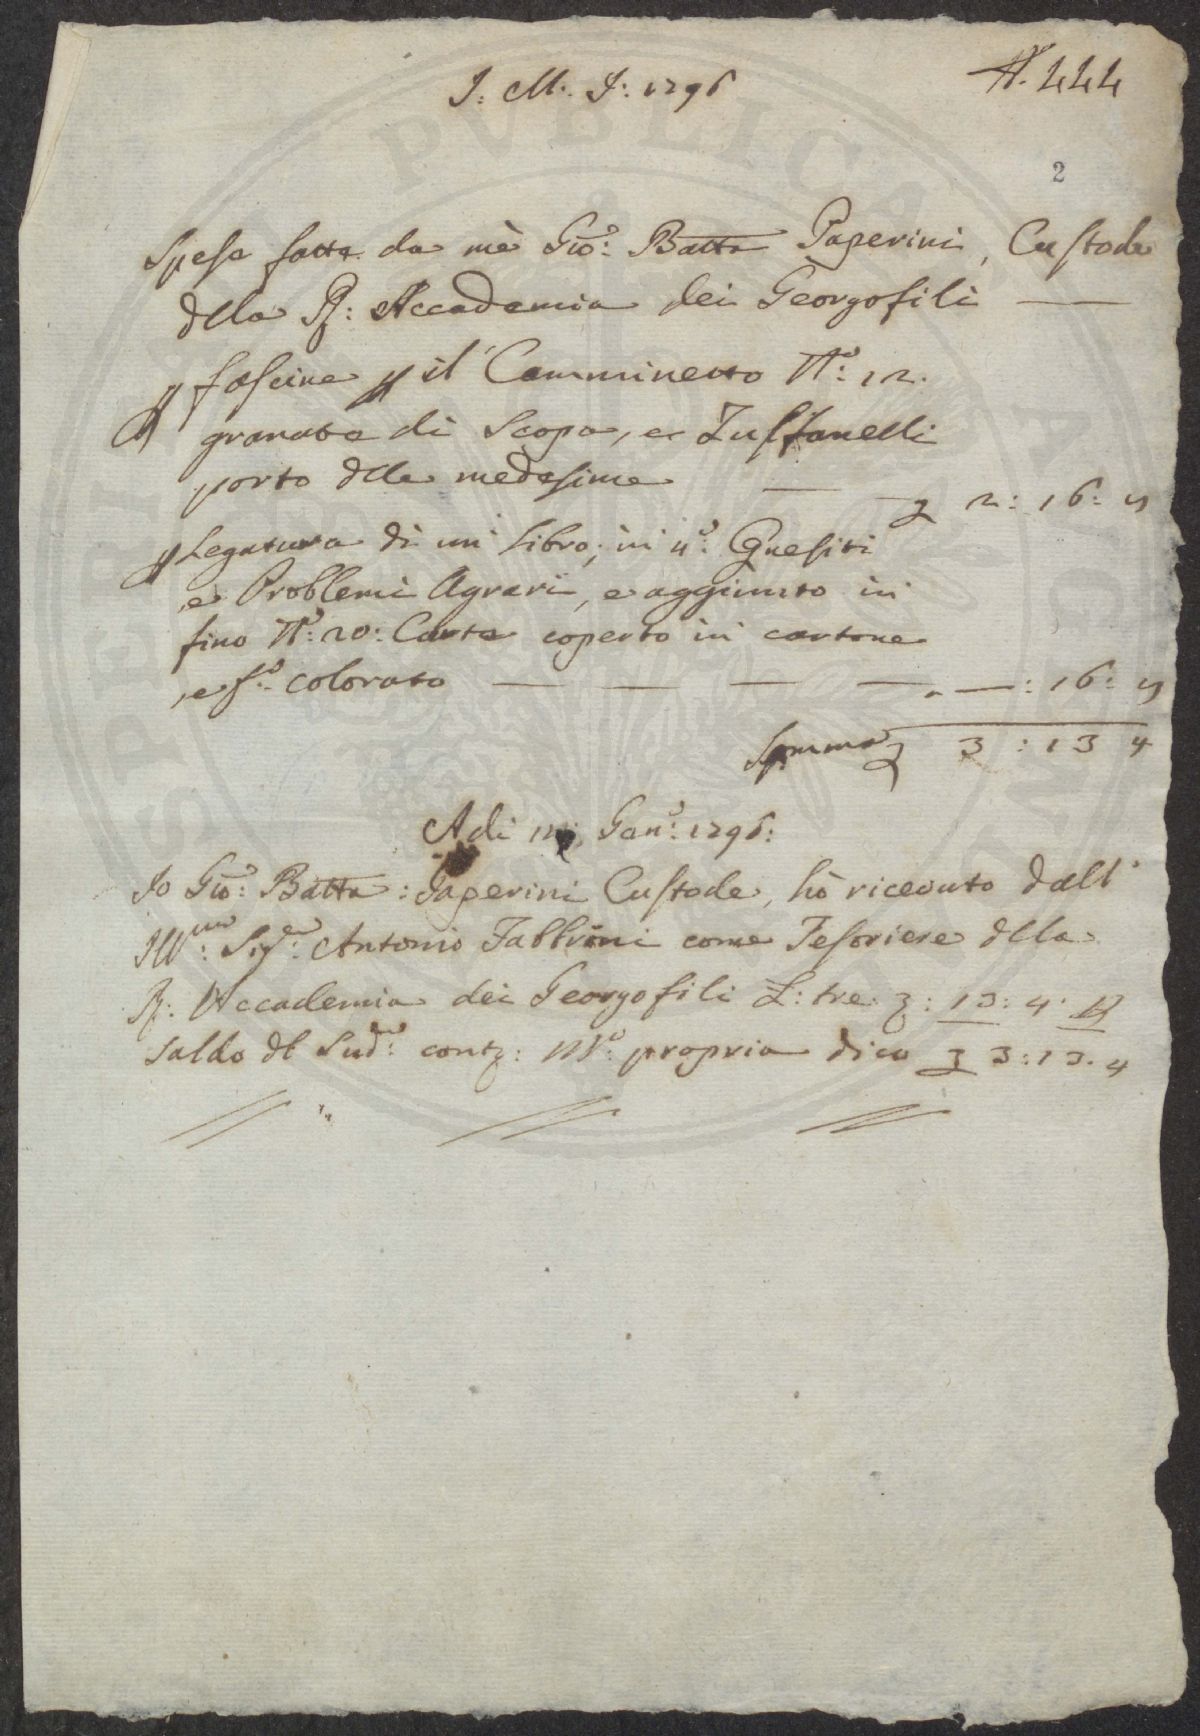 J: M: J: 1796
N.° 444
2
Spese fatte da mè Gio: Batta Paperini, Custode
dlla R: Accademia dei Georgofili
fascine il Camminetto N°: 12.
granate di Scopa, e Zulfanelli
porto dlle medesime 2: 16:
Legatura di un Libro, in 4°: Quesiti
e Problemi Agrari, e aggiunto in
fino N°: 20: Carte coperto in cartone
e f.° colorato — — — — — : 16:
Somma 3 : 13 4
Adi Gen°: 1796:
Io Gio: Batta: Paperini Custode, hò ricevuto dall'
Ill:mo Sig:e Antonio Fabbroni come Tesoriere dlla
R: Accademia dei Georgofili L: tre: 13: 4:
Saldo dl Sud:° conto: M°: propria dico 3: 13. 4